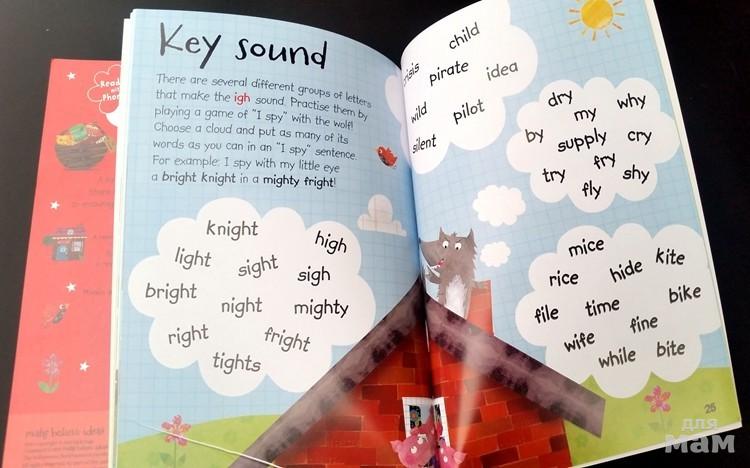 Key sound
There are several different groups of letters
that make the igh sound. Practise them by
playing a game of "I spy" with the wolf!
Choose a cloud and put as many of its
words as you can in an "I spy" sentence.
For example: I spy with my little eye
a bright knight in a mighty fright!
knight
high
light
sight
sigh
bright
night
mighty
right
fright
tights
child
pirate
idea
wild
pilot
silent
dry
why
my
by
supply
cry
try
fry
shy
fly
mice
rice
hide
kite
file
time
bike
wife
fine
while
bite
25
Read
для
мам